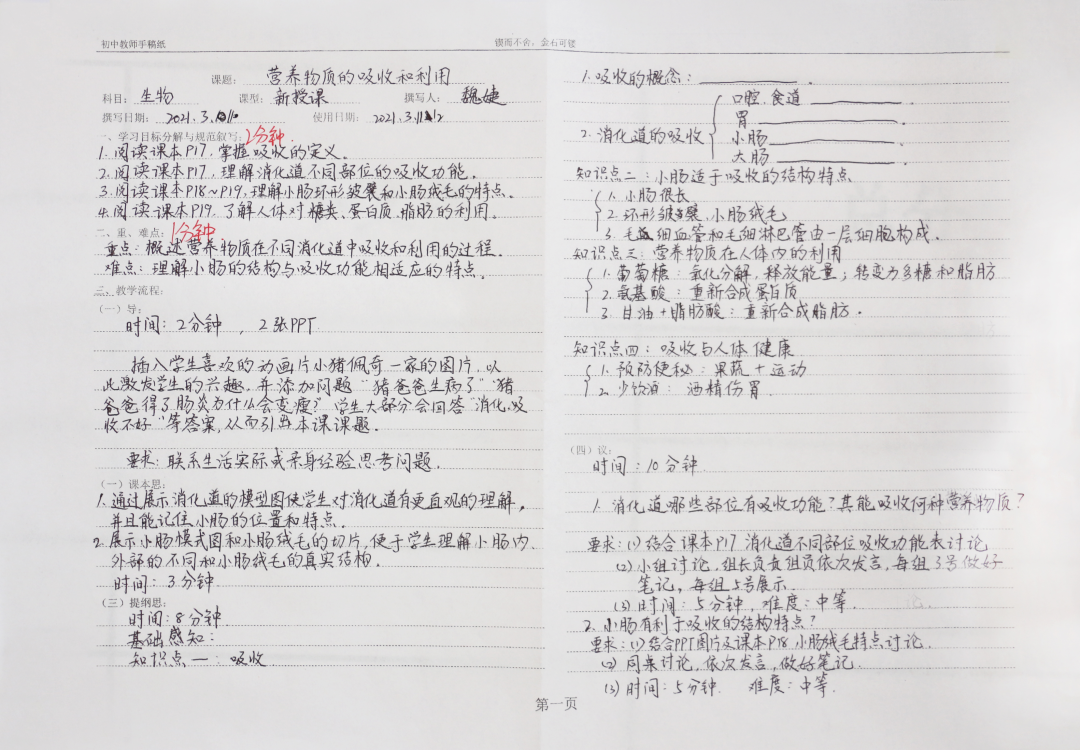 初中教师手稿纸
锲而不舍,金石可镂
课题: 营养物质的吸收和利用
科目: 生物 课型: 新授课 撰写人: 魏婕
撰写日期: 2021.3.10 使用日期: 2021.3.12
一、学习目标分解与规范叙写: 2分钟.
1. 阅读课本P17,掌握吸收的定义.
2. 阅读课本P17,理解消化道不同部位的吸收功能.
3. 阅读课本P18~P19,理解小肠环形皱襞和小肠绒毛的特点.
4. 阅读课本P19,了解人体对糖类、蛋白质、脂肪的利用.
二、重、难点: 1分钟
重点: 概述营养物质在不同消化道中吸收和利用的过程.
难点: 理解小肠的结构与吸收功能相适应的特点.
三、教学流程:
(一)导:
时间:2分钟 , 2张PPT
插入学生喜欢的动画片小猪佩奇一家的图片,以
此激发学生的兴趣,并添加问题“猪爸爸生病了”“猪
爸爸得了肠炎为什么会变瘦?”学生大部分会回答“消化、吸
收不好”等答案,从而引出本课课题.
要求:联系生活实际或亲身经验思考问题.
(一)课本思:
1. 通过展示消化道的模型图使学生对消化道有更直观的理解,
并且能记住小肠的位置和特点.
2. 展示小肠模式图和小肠绒毛的切片,便于学生理解小肠内、
外部的不同和小肠绒毛的真实结构.
时间:3分钟
(三)提纲思:
时间:8分钟.
基础感知:
知识点一:吸收
1. 吸收的概念: .
2. 消化道的吸收
口腔.食道 .
胃 .
小肠 .
大肠 .
知识点二:小肠适于吸收的结构特点
1. 小肠很长
2. 环形皱襞、小肠绒毛
3. 毛细血管和毛细淋巴管由一层细胞构成.
知识点三:营养物质在人体内的利用
1. 葡萄糖:氧化分解,释放能量;转变为多糖和脂肪
2. 氨基酸:重新合成蛋白质
3. 甘油+脂肪酸:重新合成脂肪.
知识点四:吸收与人体健康
1. 预防便秘:果蔬+运动
2. 少饮酒:酒精伤胃.
(四)议:
时间:10分钟.
1. 消化道哪些部位有吸收功能?其能吸收何种营养物质?
要求:(1)结合课本P17 消化道不同部位吸收功能表讨论
(2)小组讨论,组长负责组员依次发言,每组3号做好
笔记,每组5号展示.
(3)时间:5分钟,难度:中等.
2. 小肠有利于吸收的结构特点?
要求:(1)结合PPT图片及课本P18 小肠绒毛特点讨论.
(2)同桌讨论,依次发言,做好笔记.
(3)时间:5分钟. 难度:中等.
第一页